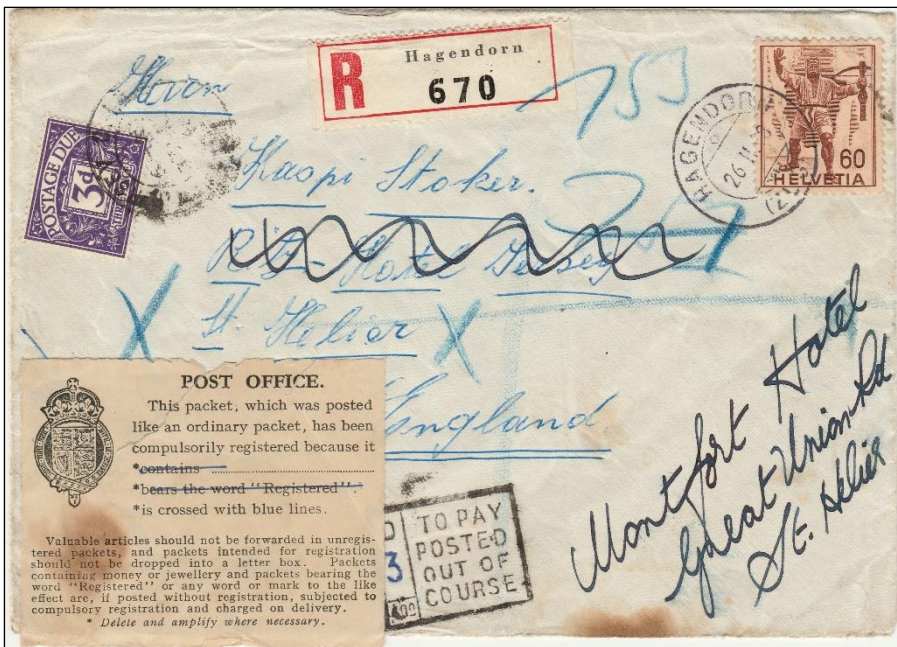 Hagendorn
R 670
Herrn
153
HAGENDORN
26.II.
60
HELVETIA
POSTAGE DUE
3d
Kaspi Stoker.
Ritz-Hotel Jersey
St. Helier
England
Montfort Hotel
Great Union Rd
St. Helier
POST OFFICE.
This packet, which was posted
like an ordinary packet, has been
compulsorily registered because it
*contains
*bears the word "Registered".
*is crossed with blue lines.
Valuable articles should not be forwarded in unregis-
tered packets, and packets intended for registration
should not be dropped into a letter box. Packets
containing money or jewellery and packets bearing the
word "Registered" or any word or mark to the like
effect are, if posted without registration, subjected to
compulsory registration and charged on delivery.
* Delete and amplify where necessary.
D
3
TO PAY
POSTED
OUT OF
COURSE